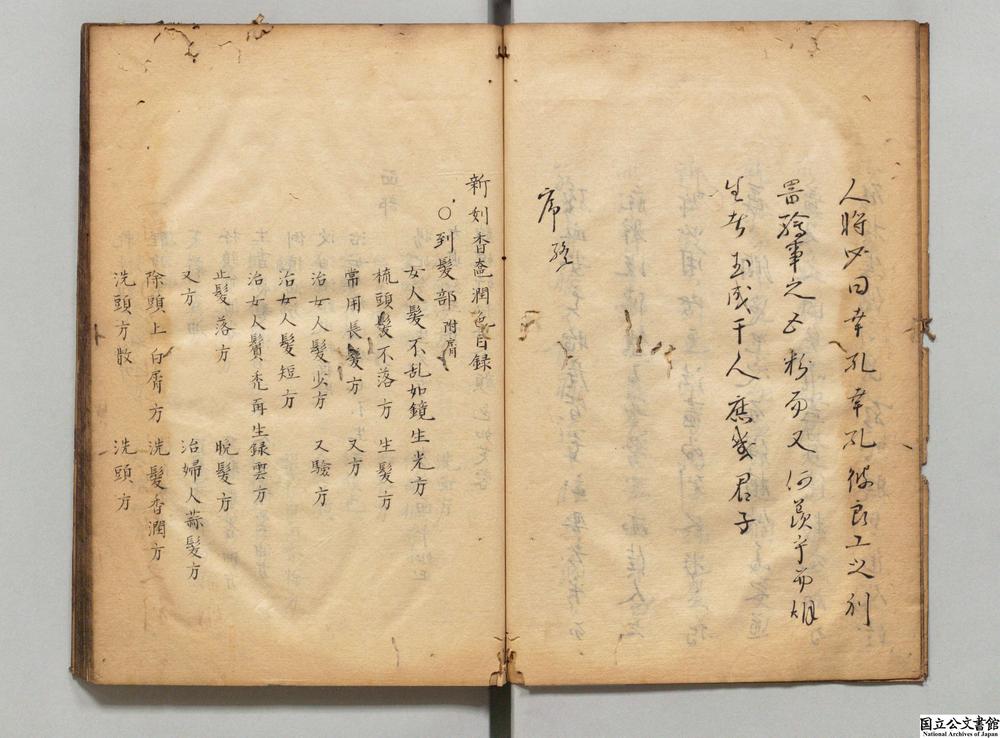 人將必曰幸孔幸孔彼良工之利
器騷事之五粉而又何羨乎而姻
生者玉成千人應幾君子
序終
新刻香奩潤色目録
○到髮部 附膏
女人髮不乱如鏡生光方
梳頭髮不落方 生髮方
常用長髮方 又方
治女人髮少方 又驗方
治女人髮短方
治女人鬢禿再生録雲方
止髮落方 脫髮方
又方 治婦人蒜髮方
除頭上白屑方 洗髮香潤方
洗頭方散 洗頭方
国立公文書館
National Archives of Japan